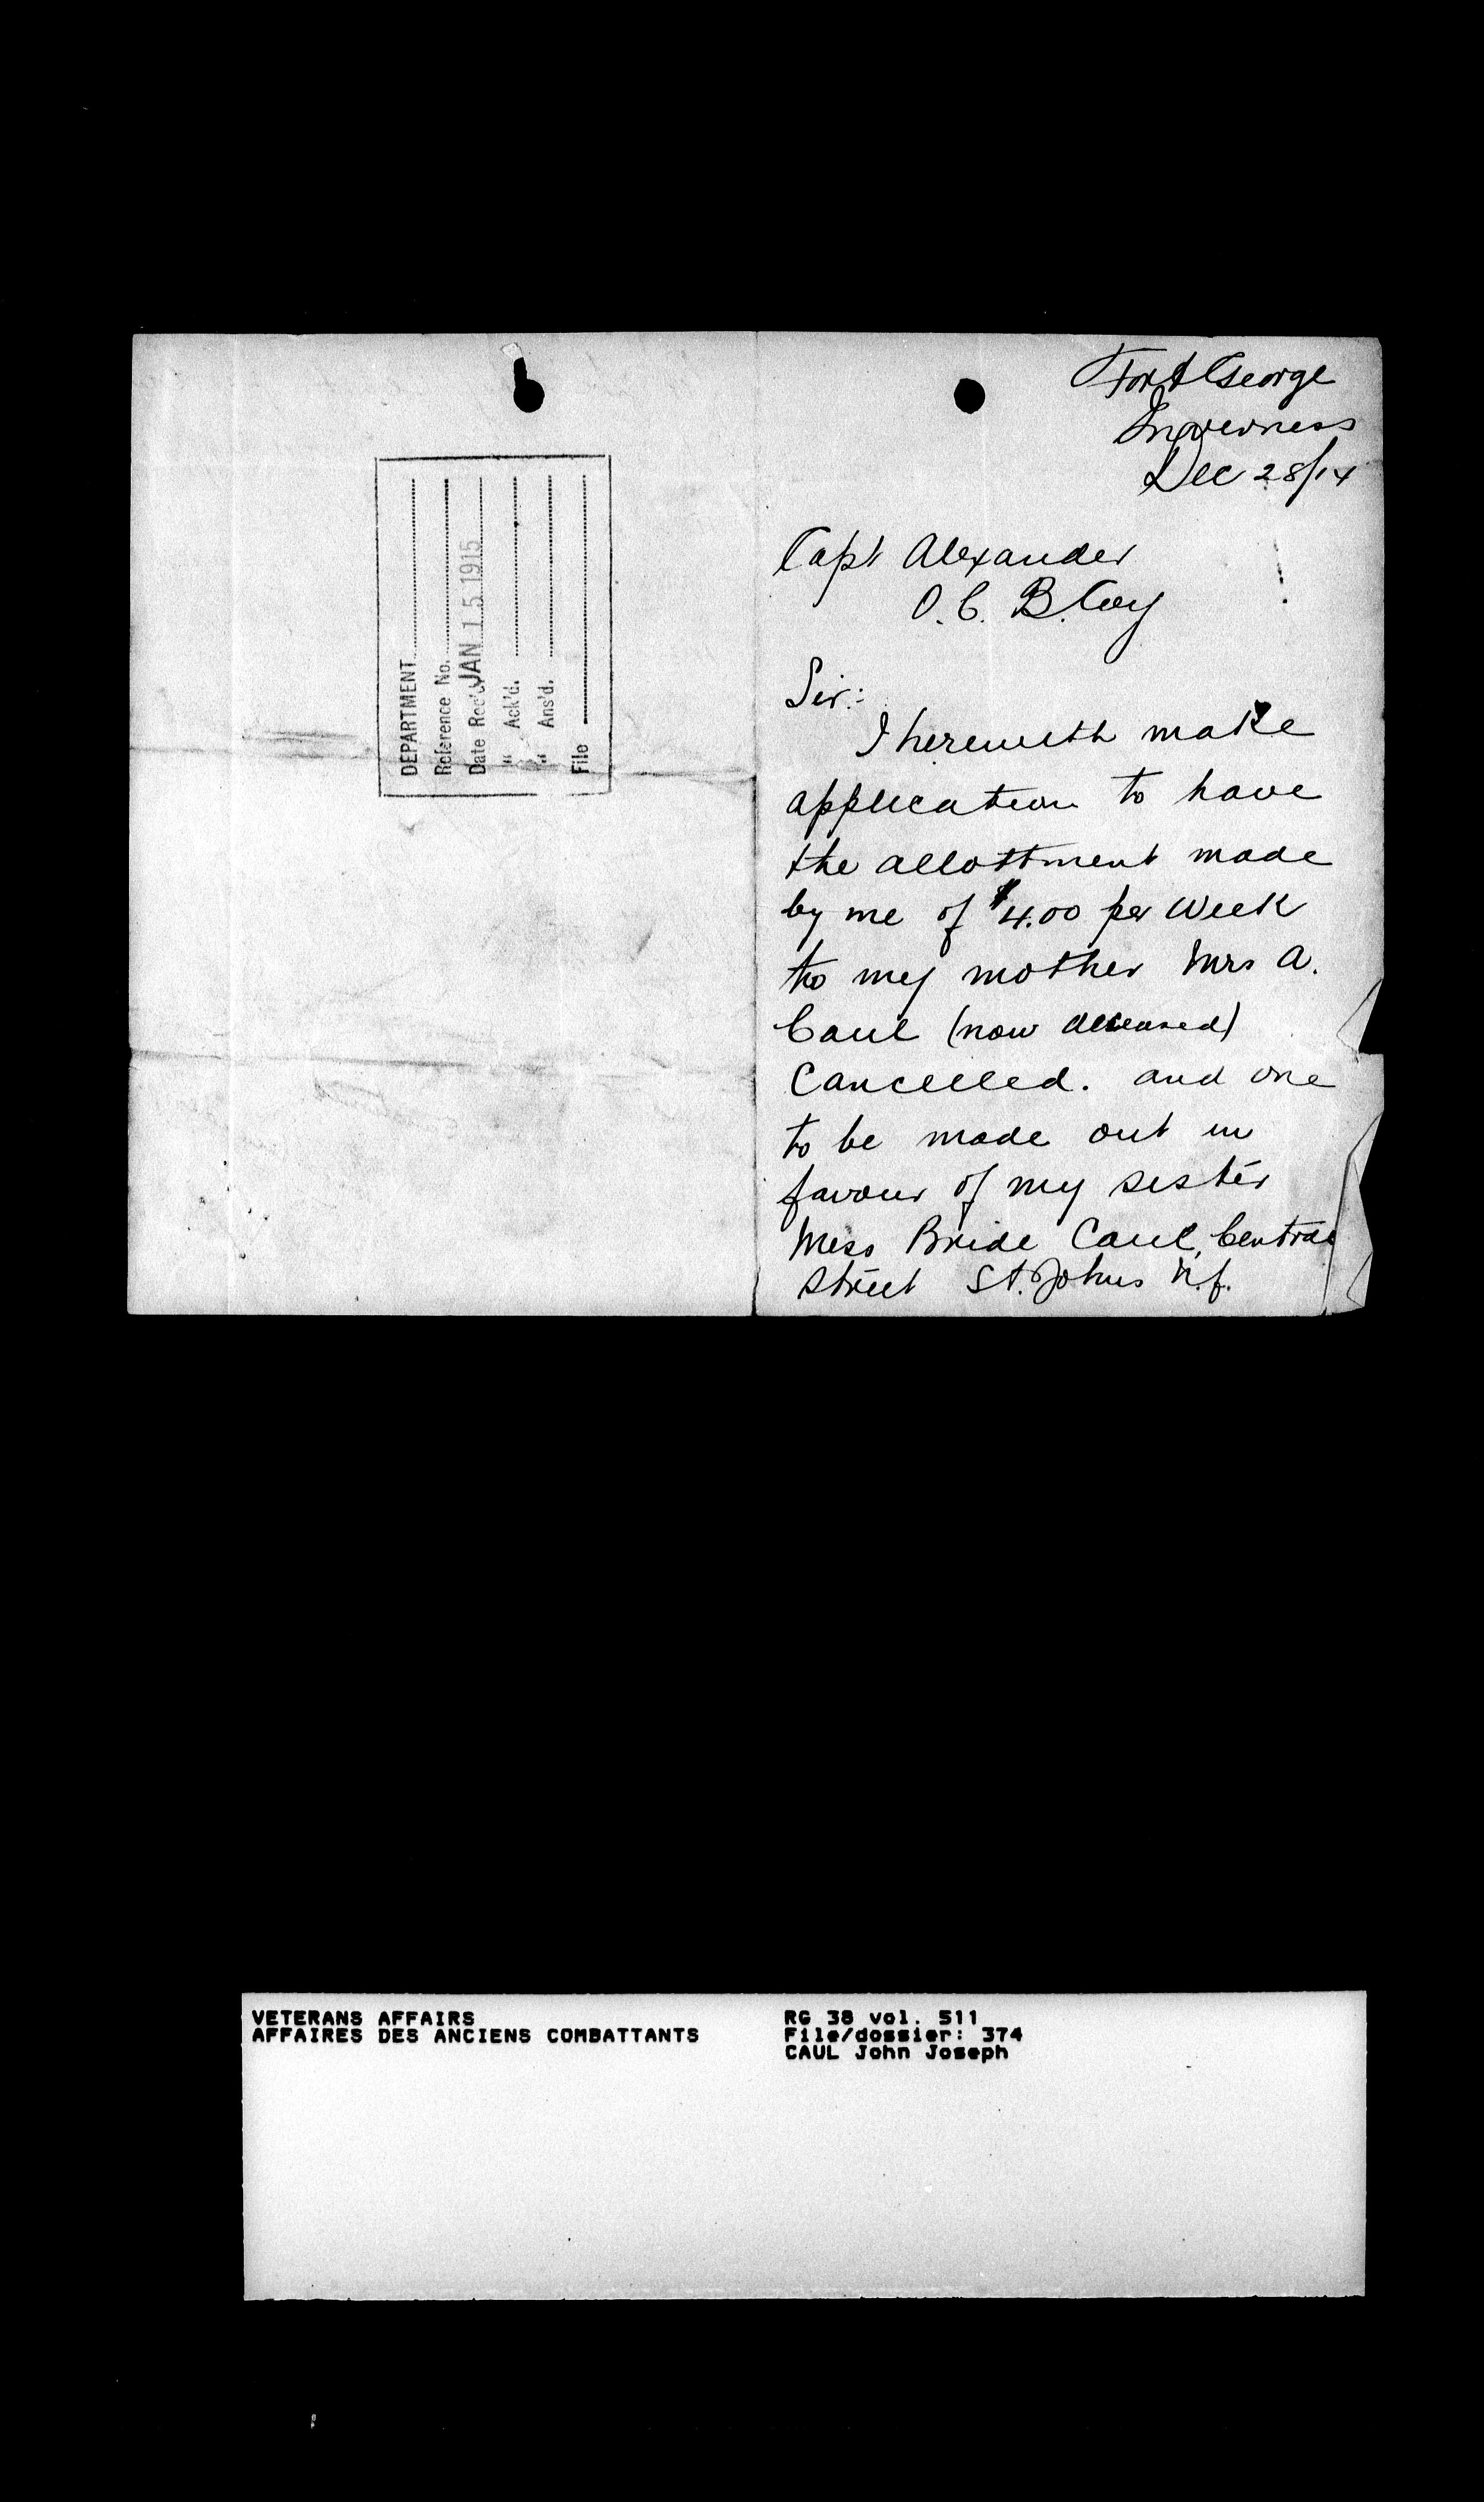 DEPARTMENT
Reference No.
Date Rec'd JAN 15 1915
" Ack'd.
" Ans'd.
File
Fort George
Inverness
Dec 28/14
Capt Alexander
O.C. B. Coy
Sir:
I herewith make
application to have
the allottment made
by me of $4.00 per week
to my mother Mrs A.
Caul (now deceased)
Cancelled. and one
to be made out in
favour of my sister
Miss Bride Caul, Central
Street St. Johns N.f.
VETERANS AFFAIRS
AFFAIRES DES ANCIENS COMBATTANTS
RG 38 vol. 511
File/dossier: 374
CAUL John Joseph